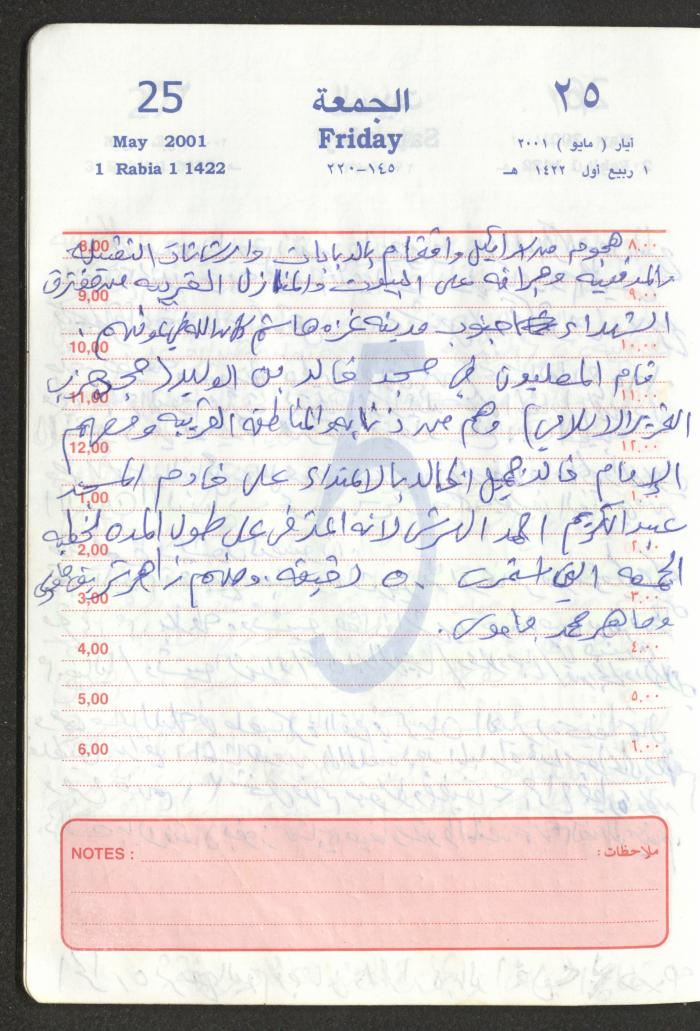 25 الجمعة ٢٥
May 2001 Friday أيار ( مايو ) ٢٠٠١
1 Rabia 1 1422 ١٤٥-٢٢٠ ١ ربيع أول ١٤٢٢ هـ
8,00 ٨,٠٠
هجوم من اسرائيل واقتحام بالدبابات والرشاشات الثقيلة
والمدفعية وجرافة على البيوت والمنازل القريبة من مفترق
9,00 ٩,٠٠
الشهداء جنوب مدينة غزة هاشم كان الله في عونهم .
10,00 ١٠,٠٠
قام المصليون في مسجد خالد بن الوليد (
11,00 ١١,٠٠
التحرير الاسلامي) وهم من المناطق القريبة ومعهم
12,00 ١٢,٠٠
الإمام خالد جميل الخالدي بالاعتداء على خادم المسجد
1,00 ١,٠٠
عبد الكريم احمد لانه اعترض على طول المدة لخطبة
2,00 ٢,٠٠
الجمعة التي استمرت ٥٠ دقيقة . ومنهم زاهر
3,00 ٣,٠٠
وماهر محمد
4,00 ٤,٠٠
5,00 ٥,٠٠
6,00 ٦,٠٠
NOTES : ملاحظات :